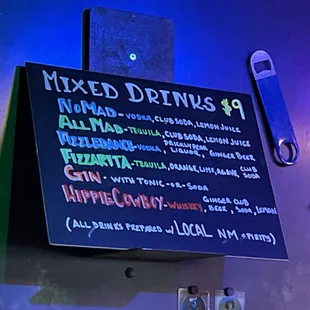 MIXED DRINKS $9
NOMAD - VODKA, CLUB SODA, LEMON JUICE
ALLMAD - TEQUILA, CLUB SODA, LEMON JUICE
FIZZLEDANCE - VODKA, PRICKLY PEAR LIQUOR, GINGER BEER
FIZZARITA - TEQUILA, ORANGE, LIME, AGAVE, CLUB SODA
GIN - WITH TONIC - OR - SODA
HIPPIE COWBOY - WHISKEY, GINGER BEER, CLUB SODA, LEMON
(ALL DRINKS PREPARED W/ LOCAL NM SPIRITS)